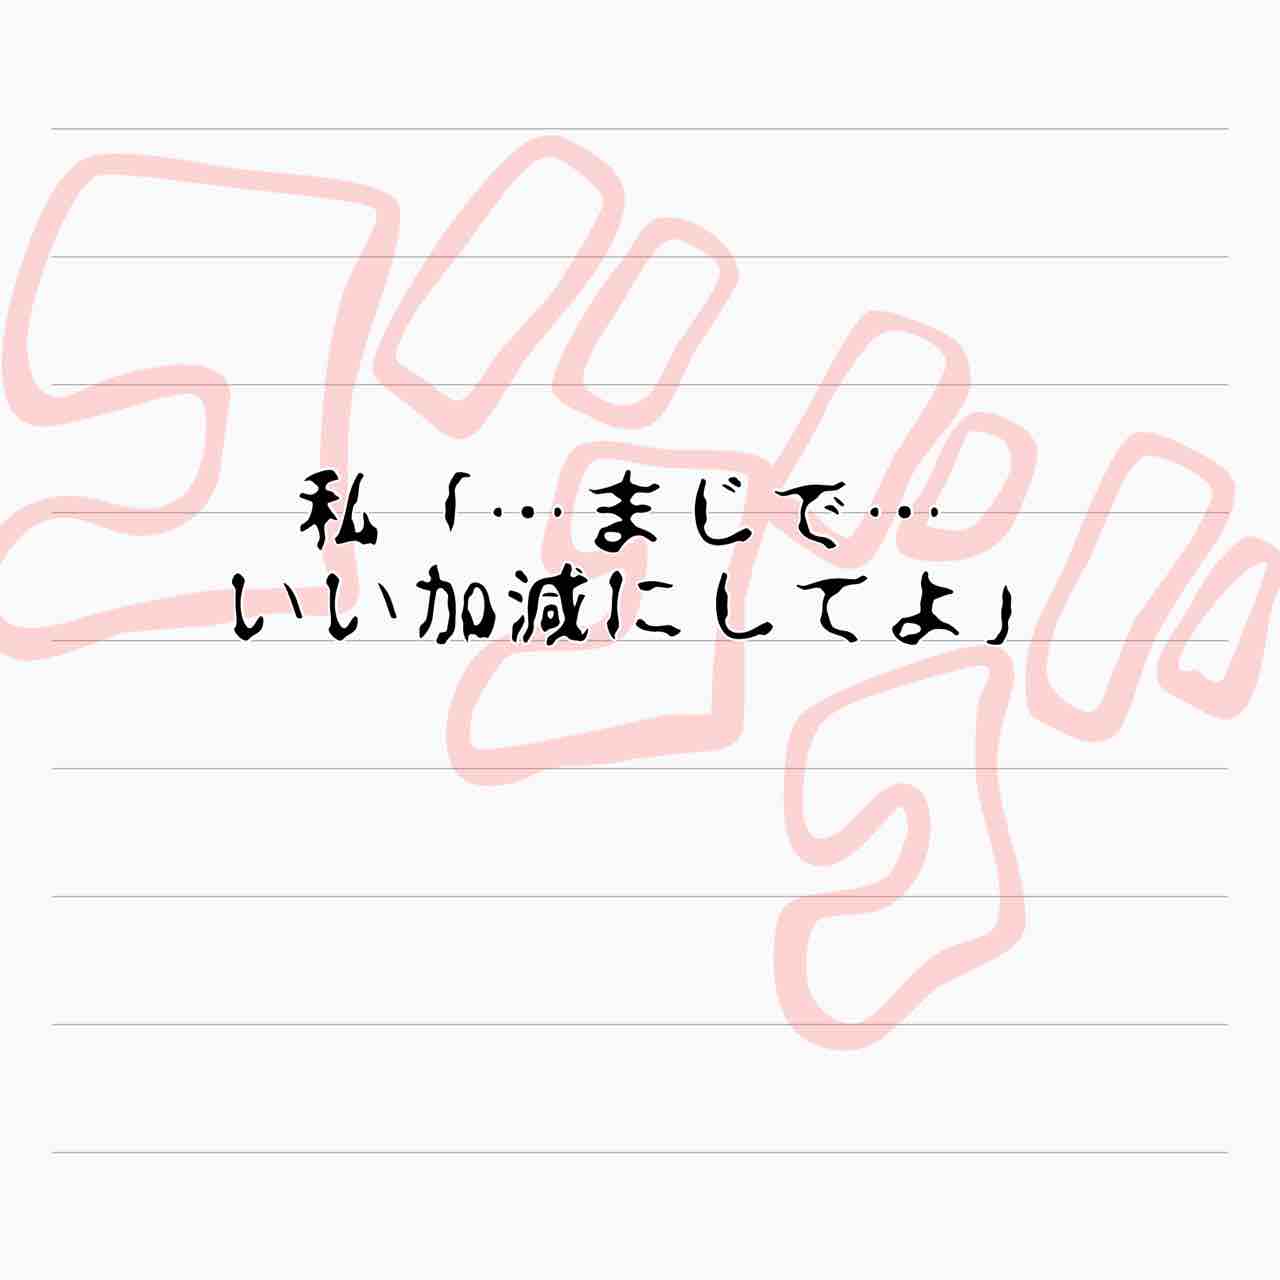 ゴゴゴ
私「…まじで…
いい加減にしてよ」